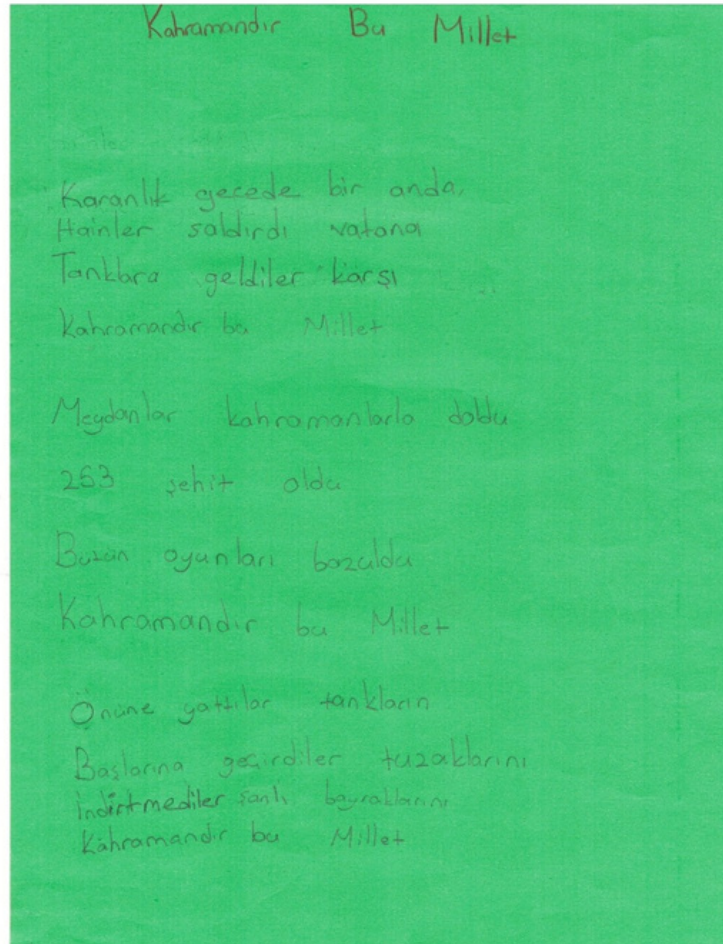 Kahramandır Bu Millet
Karanlık gecede bir anda,
Hainler saldırdı vatana
Tanklara geldiler karşı
Kahramandır bu Millet
Meydanlar kahramanlarla doldu
253 şehit oldu
Bütün oyunları bozuldu
Kahramandır bu Millet
Önüne yattılar tankların
Başlarına geçirdiler tuzaklarını
İndirtmediler şanlı bayraklarını
Kahramandır bu Millet